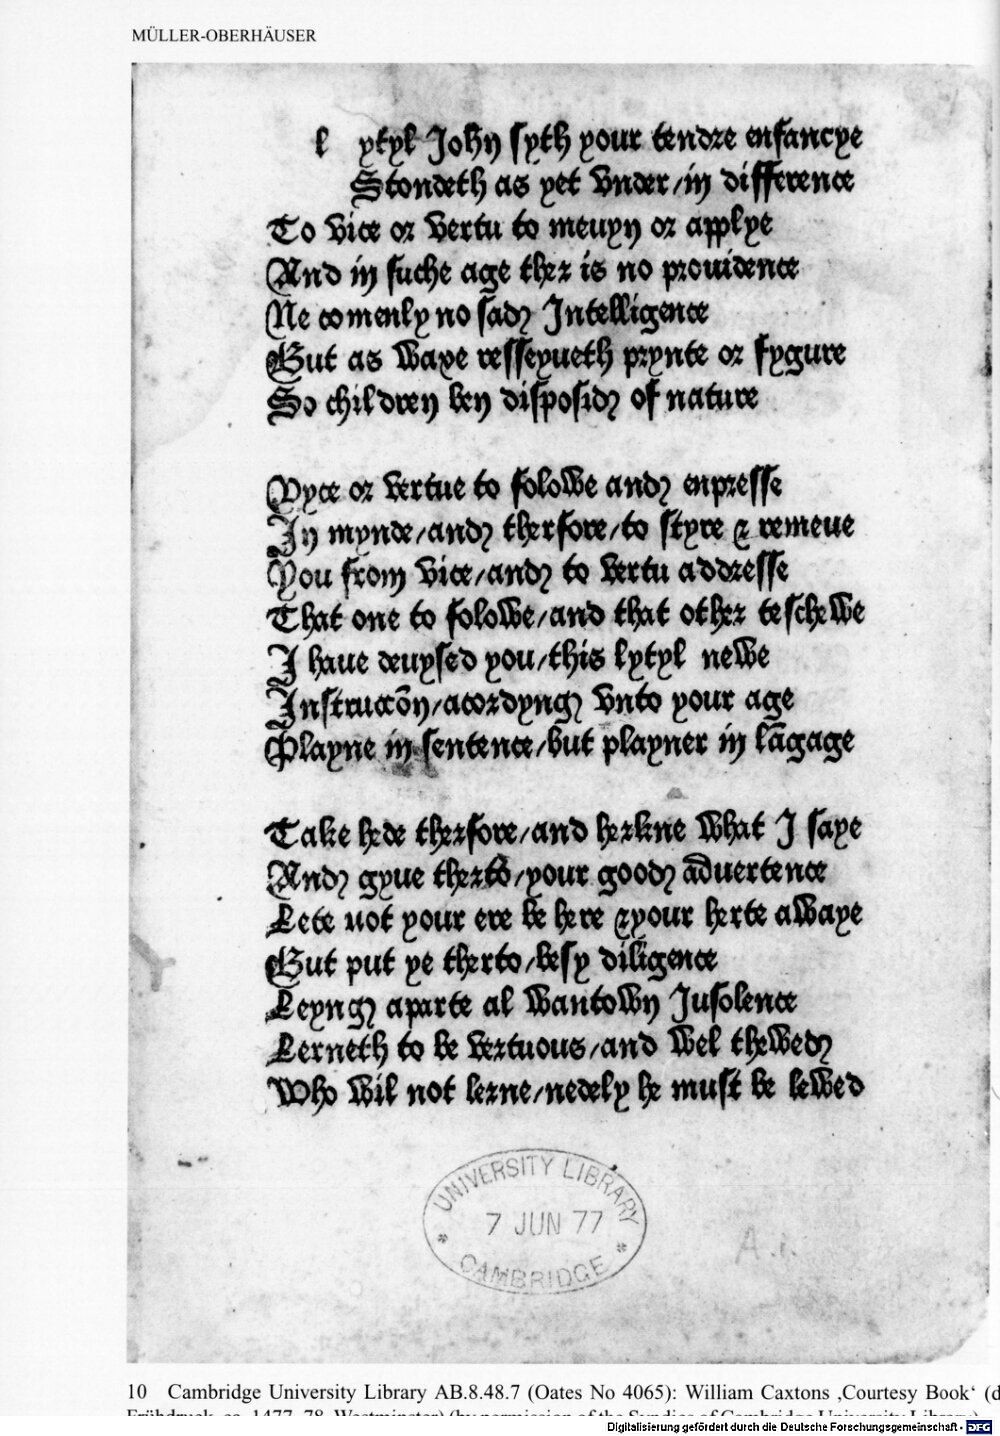 MÜLLER-OBERHÄUSER
l ytyl John syth your tendre enfancye
Stondeth as yet vnder/in difference
To vice or vertu to meuyn or applye
And in suche age ther is no prouidence
Ne comenly no sad Intelligence
But as waxe resseyueth prynte or fygure
So children ben disposid of nature
Vyce or vertue to folowe and enpresse
In mynde/and therfore/to styre & remeue
You from vice/and to vertu addresse
That one to folowe/and that other teschewe
I haue deuysed you/this lytyl newe
Instruccõn/acordyng vnto your age
Playne in sentence/but playner in lãgage
Take hede therfore/and herkne what I saye
And gyue therto/your good aduertence
Lete uot your ere be here &your herte awaye
But put ye therto/besy diligence
Leyng aparte al wantown Iusolence
Lerneth to be vertuous/and wel thewed
Who wil not lerne/nedely he must be lewed
UNIVERSITY LIBRARY
7 JUN 77
CAMBRIDGE
A.i.
10 Cambridge University Library AB.8.48.7 (Oates No 4065): William Caxtons ‚Courtesy Book‘ (d
Frühdruck, ca. 1477–78, Westminster) (by permission of the Syndics of Cambridge University Library)
Digitalisierung gefördert durch die Deutsche Forschungsgemeinschaft - DFG